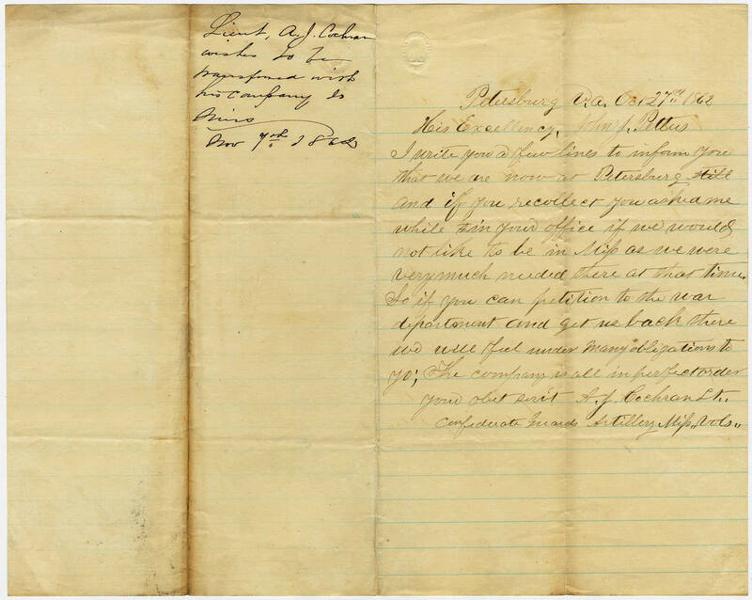 Lieut, A.J. Cochran
wishes to be
transfered with
his company to
Miss
Nov 7th 1862
Petersburg Va. Oct 27th 1862
His Excellency, John J. Pettus
I write you a few lines to inform you
that we are now at Petersburg still
and if you recollect you asked me
while in your office if we would
not like to be in Miss as we were
very much needed there at that time.
So if you can petition to the war
department and get us back there
we will feel under many obligations to
yo; The company is all in perfect order
your obet servt A. J. Cochran Lt.
Confederate Guards Artillery Miss, Vols,,